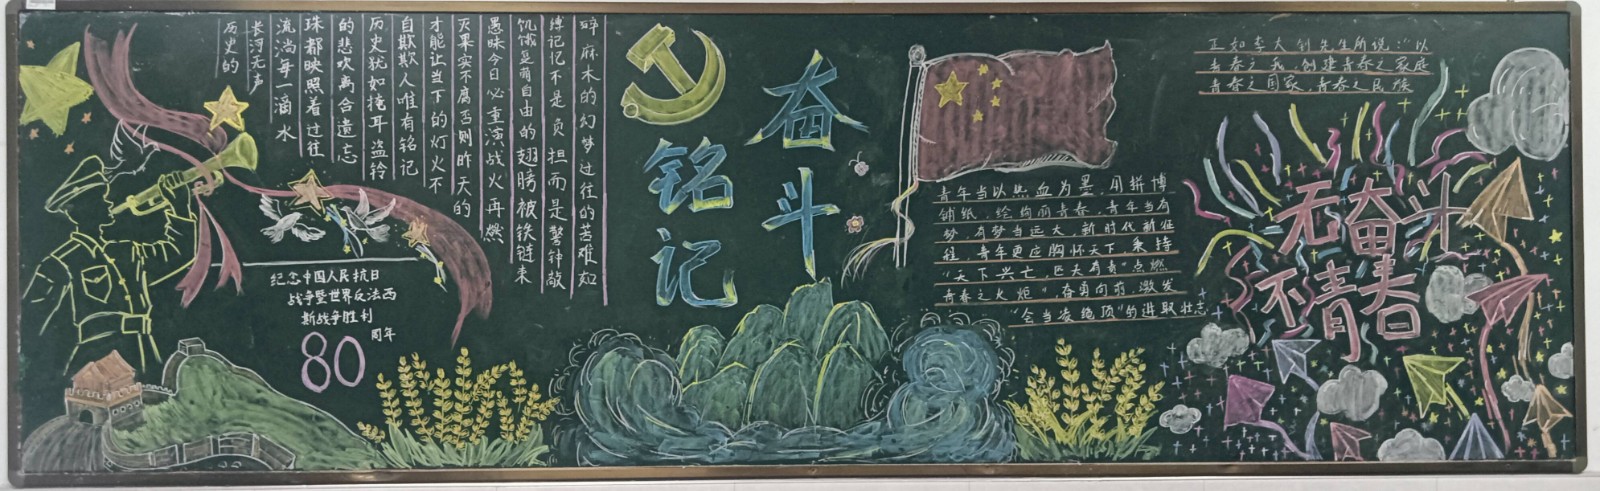 历史的
长河无声
流淌每一滴水
珠都映照着过往
的悲欢离合遗忘
历史犹如掩耳盗铃
自欺欺人唯有铭记
才能让当下的灯火不
灭果实不腐否则昨天的
愚昧今日必重演战火再燃
饥饿复萌自由的翅膀被铁链束
缚记记不是负担而是警钟敲
碎麻木的幻梦过往的苦难如
纪念中国人民抗日
战争暨世界反法西
斯战争胜利
80
周年
铭记
奋斗
青年当以热血为墨，用拼搏
铺纸，绘绚丽青春，青年当有
梦，有梦当远大，新时代新征
程，青年更应胸怀天下，秉持
“天下兴亡，匹夫有责”点燃
青春之火炬”，奋勇向前，激发
“会当凌绝顶”的进取壮志
正如李大钊先生所说：“以
青春之我，创建青春之家庭
青春之国家，青春之民族
无奋斗
不青春